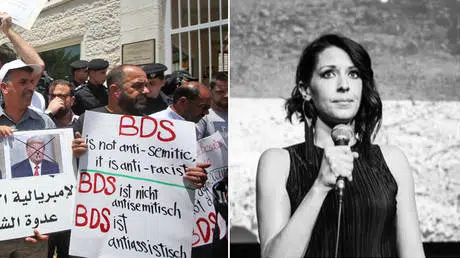 BDS
is not anti-semitic,
it is anti-racist
BDS ist nicht
antisemitisch
BDS ist
antiassistisch
لإمبريالية
عدوة